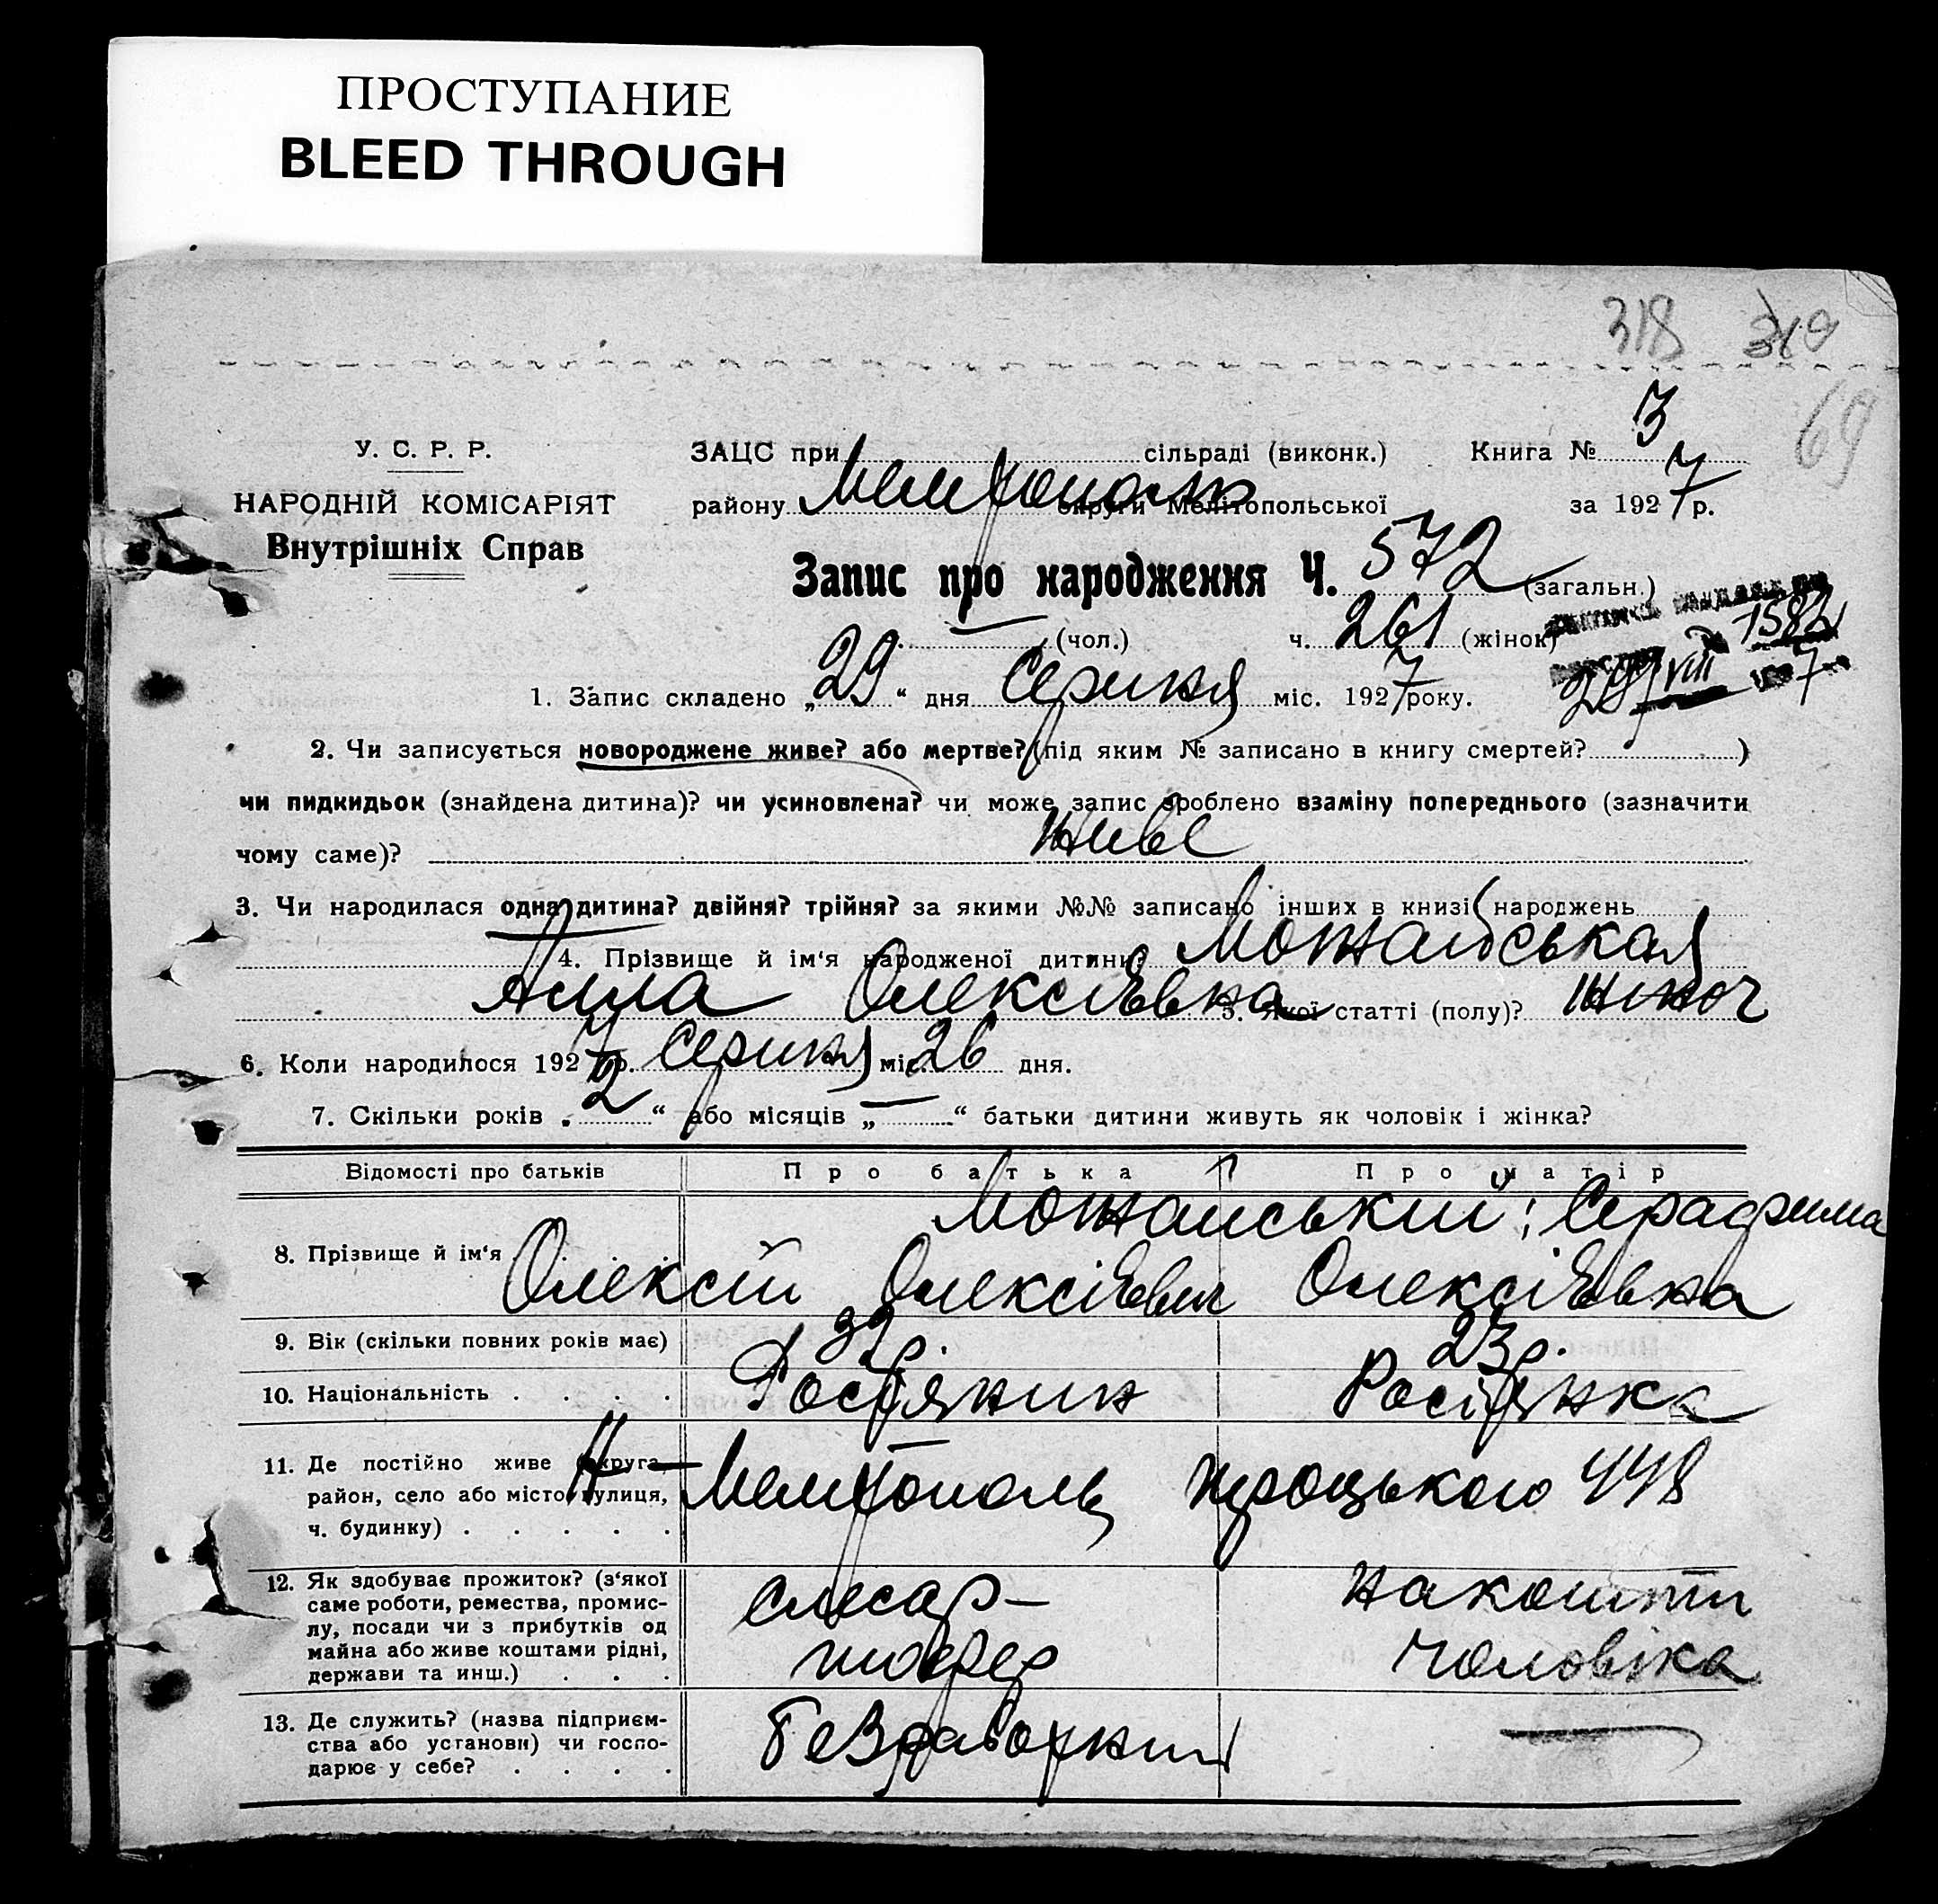 ПРОСТУПАНИЕ
BLEED THROUGH
318
69
У. С. Р. Р.
НАРОДНІЙ КОМІСАРІЯТ
Внутрішніх Справ
ЗАЦС при сільраді (виконк.) Книга № 3
району Мелітопольск округи Мелітопольської за 1927 р.
Запис про народження Ч. 572 (загальн.)
— (чол.) ч. 261 (жінок)
1582
29 VIII 7
1. Запис складено „29“ дня Серпня міс. 1927 року.
2. Чи записується новороджене живе? або мертве? (під яким № записано в книгу смертей? )
чи пидкидьок (знайдена дитина)? чи усиновлена? чи може запис зроблено взаміну попереднього (зазначити
чому саме)? живе
3. Чи народилася одна дитина? двійня? трійня? за якими №№ записано інших в книзі народжень
4. Прізвище й ім‘я народженої дитини? Можайськая
Алла Олексіївна 5. Якої статті (полу)? жіноч
6. Коли народилося 1927 р. Серпня міс. 26 дня.
7. Скільки років „2“ або місяців „—“ батьки дитини живуть як чоловік і жінка?
Відомості про батьків Про батька Про матір
Можайський; Серафима
8. Прізвище й ім‘я Олексій Олексієвич Олексіївна
9. Вік (скільки повних років має) 32 р. 23 р.
10. Національність . . . . Росіянин Росіянка
11. Де постійно живе (округа,
район, село або місто, вулиця,
ч. будинку) . . . . .
Н-Мелітополь Троцького 448
12. Як здобуває прожиток? (з‘якої
саме роботи, ремества, промис-
лу, посади чи з прибутків од
майна або живе коштами рідні,
держави та инш.) . . .
слесар- на кошти
шофер чоловіка
13. Де служить? (назва підприєм-
ства або установи) чи госпо-
дарює у себе? . . . .
Безработний —